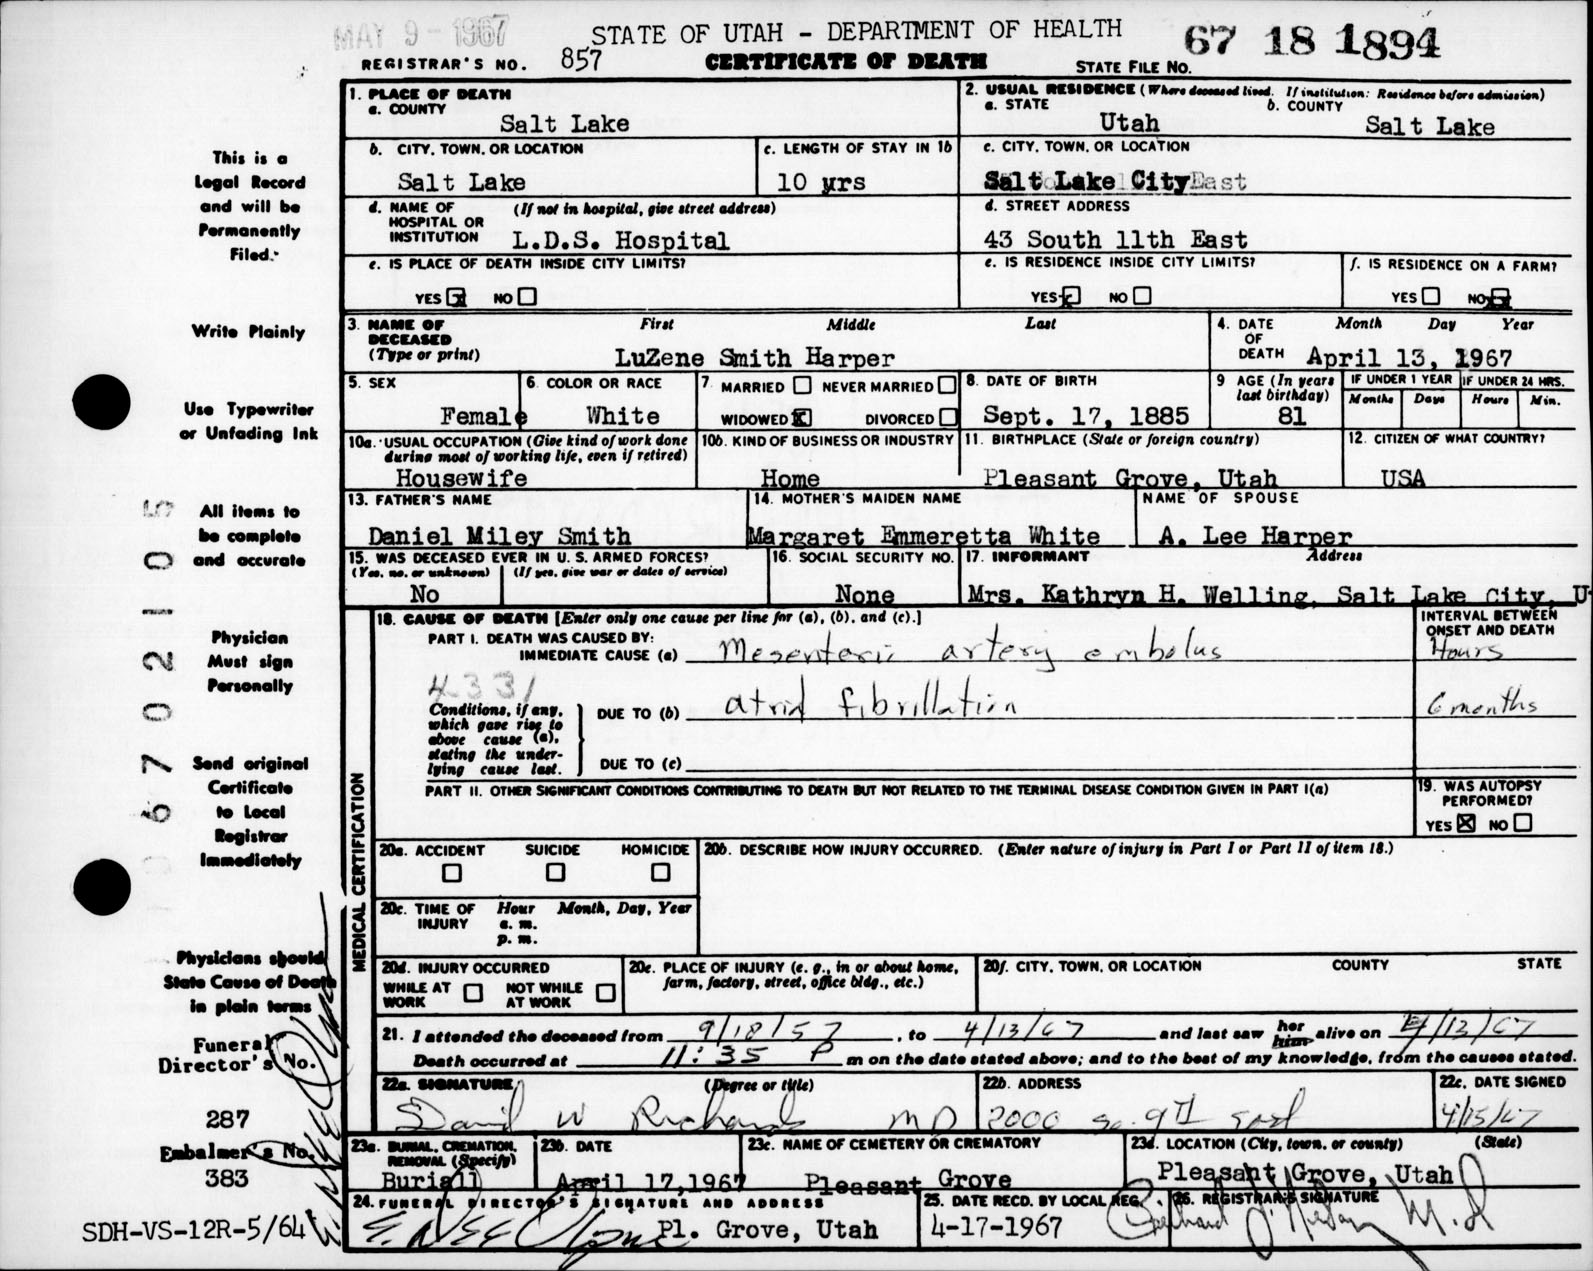 MAY 9 - 1967
STATE OF UTAH - DEPARTMENT OF HEALTH
67 18 1894
REGISTRAR'S NO. 857
CERTIFICATE OF DEATH
STATE FILE NO.
1. PLACE OF DEATH
a. COUNTY
Salt Lake
2. USUAL RESIDENCE (Where deceased lived. If institution: Residence before admission)
a. STATE
Utah
b. COUNTY
Salt Lake
b. CITY, TOWN, OR LOCATION
Salt Lake
c. LENGTH OF STAY IN 1b
10 yrs
c. CITY, TOWN, OR LOCATION
Salt Lake City East
d. NAME OF HOSPITAL OR INSTITUTION
(If not in hospital, give street address)
L.D.S. Hospital
d. STREET ADDRESS
43 South 11th East
e. IS PLACE OF DEATH INSIDE CITY LIMITS?
YES X NO
e. IS RESIDENCE INSIDE CITY LIMITS?
YES X NO
f. IS RESIDENCE ON A FARM?
YES NO X
3. NAME OF DECEASED (Type or print)
First Middle Last
LuZene Smith Harper
4. DATE OF DEATH
Month Day Year
April 13, 1967
5. SEX
Female
6. COLOR OR RACE
White
7. MARRIED NEVER MARRIED
WIDOWED X DIVORCED
8. DATE OF BIRTH
Sept. 17, 1885
9 AGE (In years last birthday)
81
IF UNDER 1 YEAR
Months Days
IF UNDER 24 HRS.
Hours Min.
10a. USUAL OCCUPATION (Give kind of work done during most of working life, even if retired)
Housewife
10b. KIND OF BUSINESS OR INDUSTRY
Home
11. BIRTHPLACE (State or foreign country)
Pleasant Grove, Utah
12. CITIZEN OF WHAT COUNTRY?
USA
13. FATHER'S NAME
Daniel Miley Smith
14. MOTHER'S MAIDEN NAME
Margaret Emmeretta White
NAME OF SPOUSE
A. Lee Harper
15. WAS DECEASED EVER IN U. S. ARMED FORCES?
(Yes, no, or unknown) (If yes, give war or dates of service)
No
16. SOCIAL SECURITY NO.
None
17. INFORMANT Address
Mrs. Kathryn H. Welling, Salt Lake City, U
MEDICAL CERTIFICATION
18. CAUSE OF DEATH [Enter only one cause per line for (a), (b), and (c).]
PART I. DEATH WAS CAUSED BY:
IMMEDIATE CAUSE (a) Mesenteric artery embolus
INTERVAL BETWEEN ONSET AND DEATH
Hours
4331
Conditions, if any, which gave rise to above cause (a), stating the underlying cause last.
DUE TO (b) atrial fibrillation
6 months
DUE TO (c)
PART II. OTHER SIGNIFICANT CONDITIONS CONTRIBUTING TO DEATH BUT NOT RELATED TO THE TERMINAL DISEASE CONDITION GIVEN IN PART I(a)
19. WAS AUTOPSY PERFORMED?
YES X NO
20a. ACCIDENT SUICIDE HOMICIDE
20b. DESCRIBE HOW INJURY OCCURRED. (Enter nature of injury in Part I or Part II of item 18.)
20c. TIME OF INJURY
Hour Month, Day, Year
a. m.
p. m.
20d. INJURY OCCURRED
WHILE AT WORK NOT WHILE AT WORK
20e. PLACE OF INJURY (e. g., in or about home, farm, factory, street, office bldg., etc.)
20f. CITY, TOWN, OR LOCATION COUNTY STATE
21. I attended the deceased from 9/18/57, to 4/13/67 and last saw her him alive on 4/13/67
Death occurred at 11:35 P m on the date stated above; and to the best of my knowledge, from the causes stated.
22a. SIGNATURE (Degree or title)
David W Richards MD
22b. ADDRESS
2000 So. 9th East
22c. DATE SIGNED
4/15/67
23a. BURIAL, CREMATION, REMOVAL (Specify)
Buriall
23b. DATE
April 17, 1967
23c. NAME OF CEMETERY OR CREMATORY
Pleasant Grove
23d. LOCATION (City, town, or county) (State)
Pleasant Grove, Utah
24. FUNERAL DIRECTOR'S SIGNATURE AND ADDRESS
Pl. Grove, Utah
25. DATE RECD. BY LOCAL REG.
4-17-1967
26. REGISTRAR'S SIGNATURE
M.D
This is a
Legal Record
and will be
Permanently
Filed.
Write Plainly
Use Typewriter
or Unfading Ink
All items to
be complete
and accurate
Physician
Must sign
Personally
Send original
Certificate
to Local
Registrar
Immediately
Physicians should
State Cause of Death
in plain terms
Funeral
Director's No.
287
Embalmer's No.
383
SDH-VS-12R-5/64
6702105